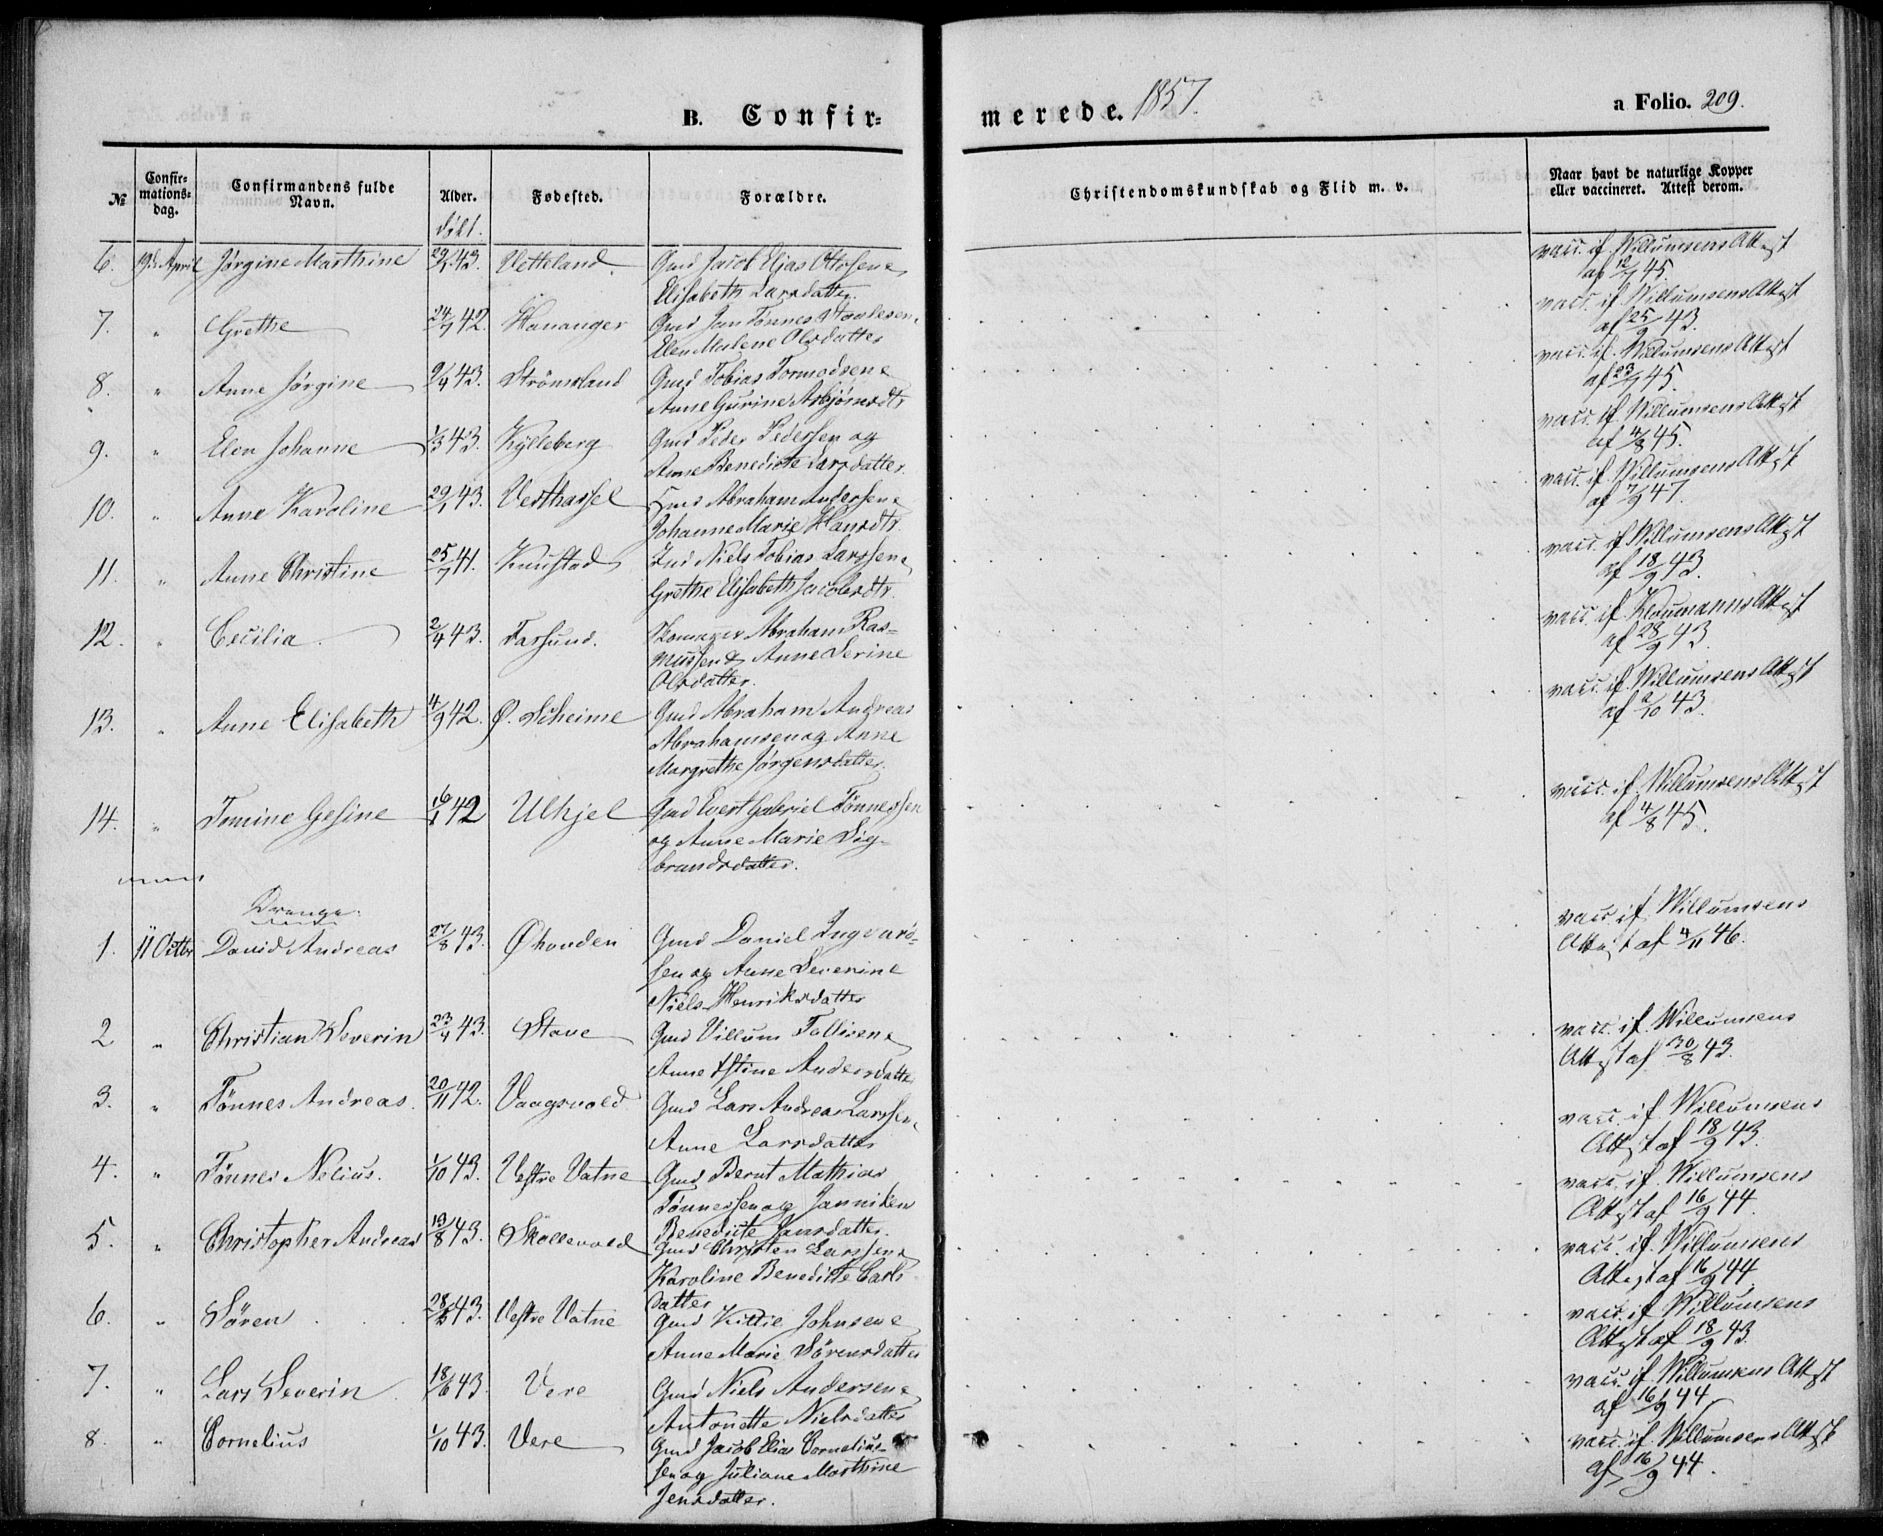 B. Confir-
merede. 1857.
a Folio. 209.
№
Confir-
mations-
dag.
Confirmandens fulde
Navn.
Alder.
Fødested.
Forældre.
Christendomskundskab og Flid m. v.
Naar havt de naturlige Kopper
eller vaccineret. Attest derom.
døbt.
6. 19de April Jørgine Marthine 29/1 43. Vetteland. Gmd Jacob Elias Ottosen &
Elisabeth Larsdatter.
vacc. if. Willumsens Attest
af 12/7 45.
7. " Grethe 24/7 42 Hananger Gmd Jan Tønnes Staalesen,
Elen Malene Olsdatter
vacc. if. Willumsens Attest
af 25/9 43.
8. " Anne Jørgine 9/4 43. Strömsland Gmd Tobias Tormodsen &
Anne Gurine Asbjörnsdtr
vacc. if. Willumsens Attest
af 23/7 45.
9. " Elen Johanne 1/3 43. Kylleberg Gmd Peder Pedersen og
Anne Benedicte Larsdatter.
vacc. if Willumsens Attest
af 4/8 45.
10. " Anne Karoline 29/1 43. Vesthassel Abraham Andersen &
Johanne Marie Hansdtr.
vacc. if. Willumsens Attest
af 7/9 47.
11. " Anne Christine 25/7 41. Knustad Ind Niels Tobias Larssen &
Grethe Elisabeth Jacobsdtr.
vacc. if Willumsens Attest
af 18/9 43.
12. " Cecilia 2/4 43. Farsund. Skomager Abraham Ras-
mussen & Anne Serine
Olsdatter.
vacc. if Kloumanns Attest
af 28/9 43.
13. " Anne Elisabeth 4/9 42. Ø. Skeime Gmd Abraham Andreas
Abrahamsen og Anne
Margrethe Jørgensdatter.
vacc. if. Willumsens Attest
af 2/10 43.
14. " Tomine Gesine 16/1 42 Ulhjel Gmd Evert Gabriel Tönnessen
og Anne Marie Sig-
brandsdatter.
vacc. if. Willumsens Attest
af 4/8 45.
Drenge.
1. 11 Octbr David Andreas 27/8 43. Øhouden Gmd Daniel Ingvars-
sen og Anne Severine
Niels Henriksdatter
vacc. if. Willumsens
Attest af 4/11 46.
2 " Christian Severin 23/4 43. Stave Gmd Villum Tollisen &
Anne Stine Andersdatter
vacc. if Willumsens
Attest af 30/8 43.
3. " Tönnes Andreas. 20/11 42. Vaagsvold Gmd Lars Andreas Larssen,
Anne Larsdatter
vacc. if. Willumsens
Attest af 18/9 43.
4. " Tönnes Nelius. 1/10 43. Vestre Vatne Gmd Bernt Mathias
Tönnessen og Janniken
Benedicte Jansdatter.
vacc. if. Willumsens
Attest af 16/9 44.
5. " Christopher Andreas 13/8 43. Skollevold Gmd Christen Larssen &
Karoline Benedicte Carls
datter
vacc. if. Willumsens
Attest af 16/9 44.
6. " Sören 43. Vestre Vatne Gmd Kittil Johnsen &
Anne Marie Sörensdatter
vacc. if Willumsens
Attest af 18/9 43.
7. " Lars Severin 18/6 43. Vere Gmd Niels Andersen &
Antonette Nielsdatter
vacc. if. Willumsens Attest
af 16/9 44
8. " Cornelius 1/10 43. Vere Gmd Jacob Elias Cornelius-
sen og Juliane Marthine
Jensdatter.
vacc. if. Willumsens Attest
af 16/9 44.